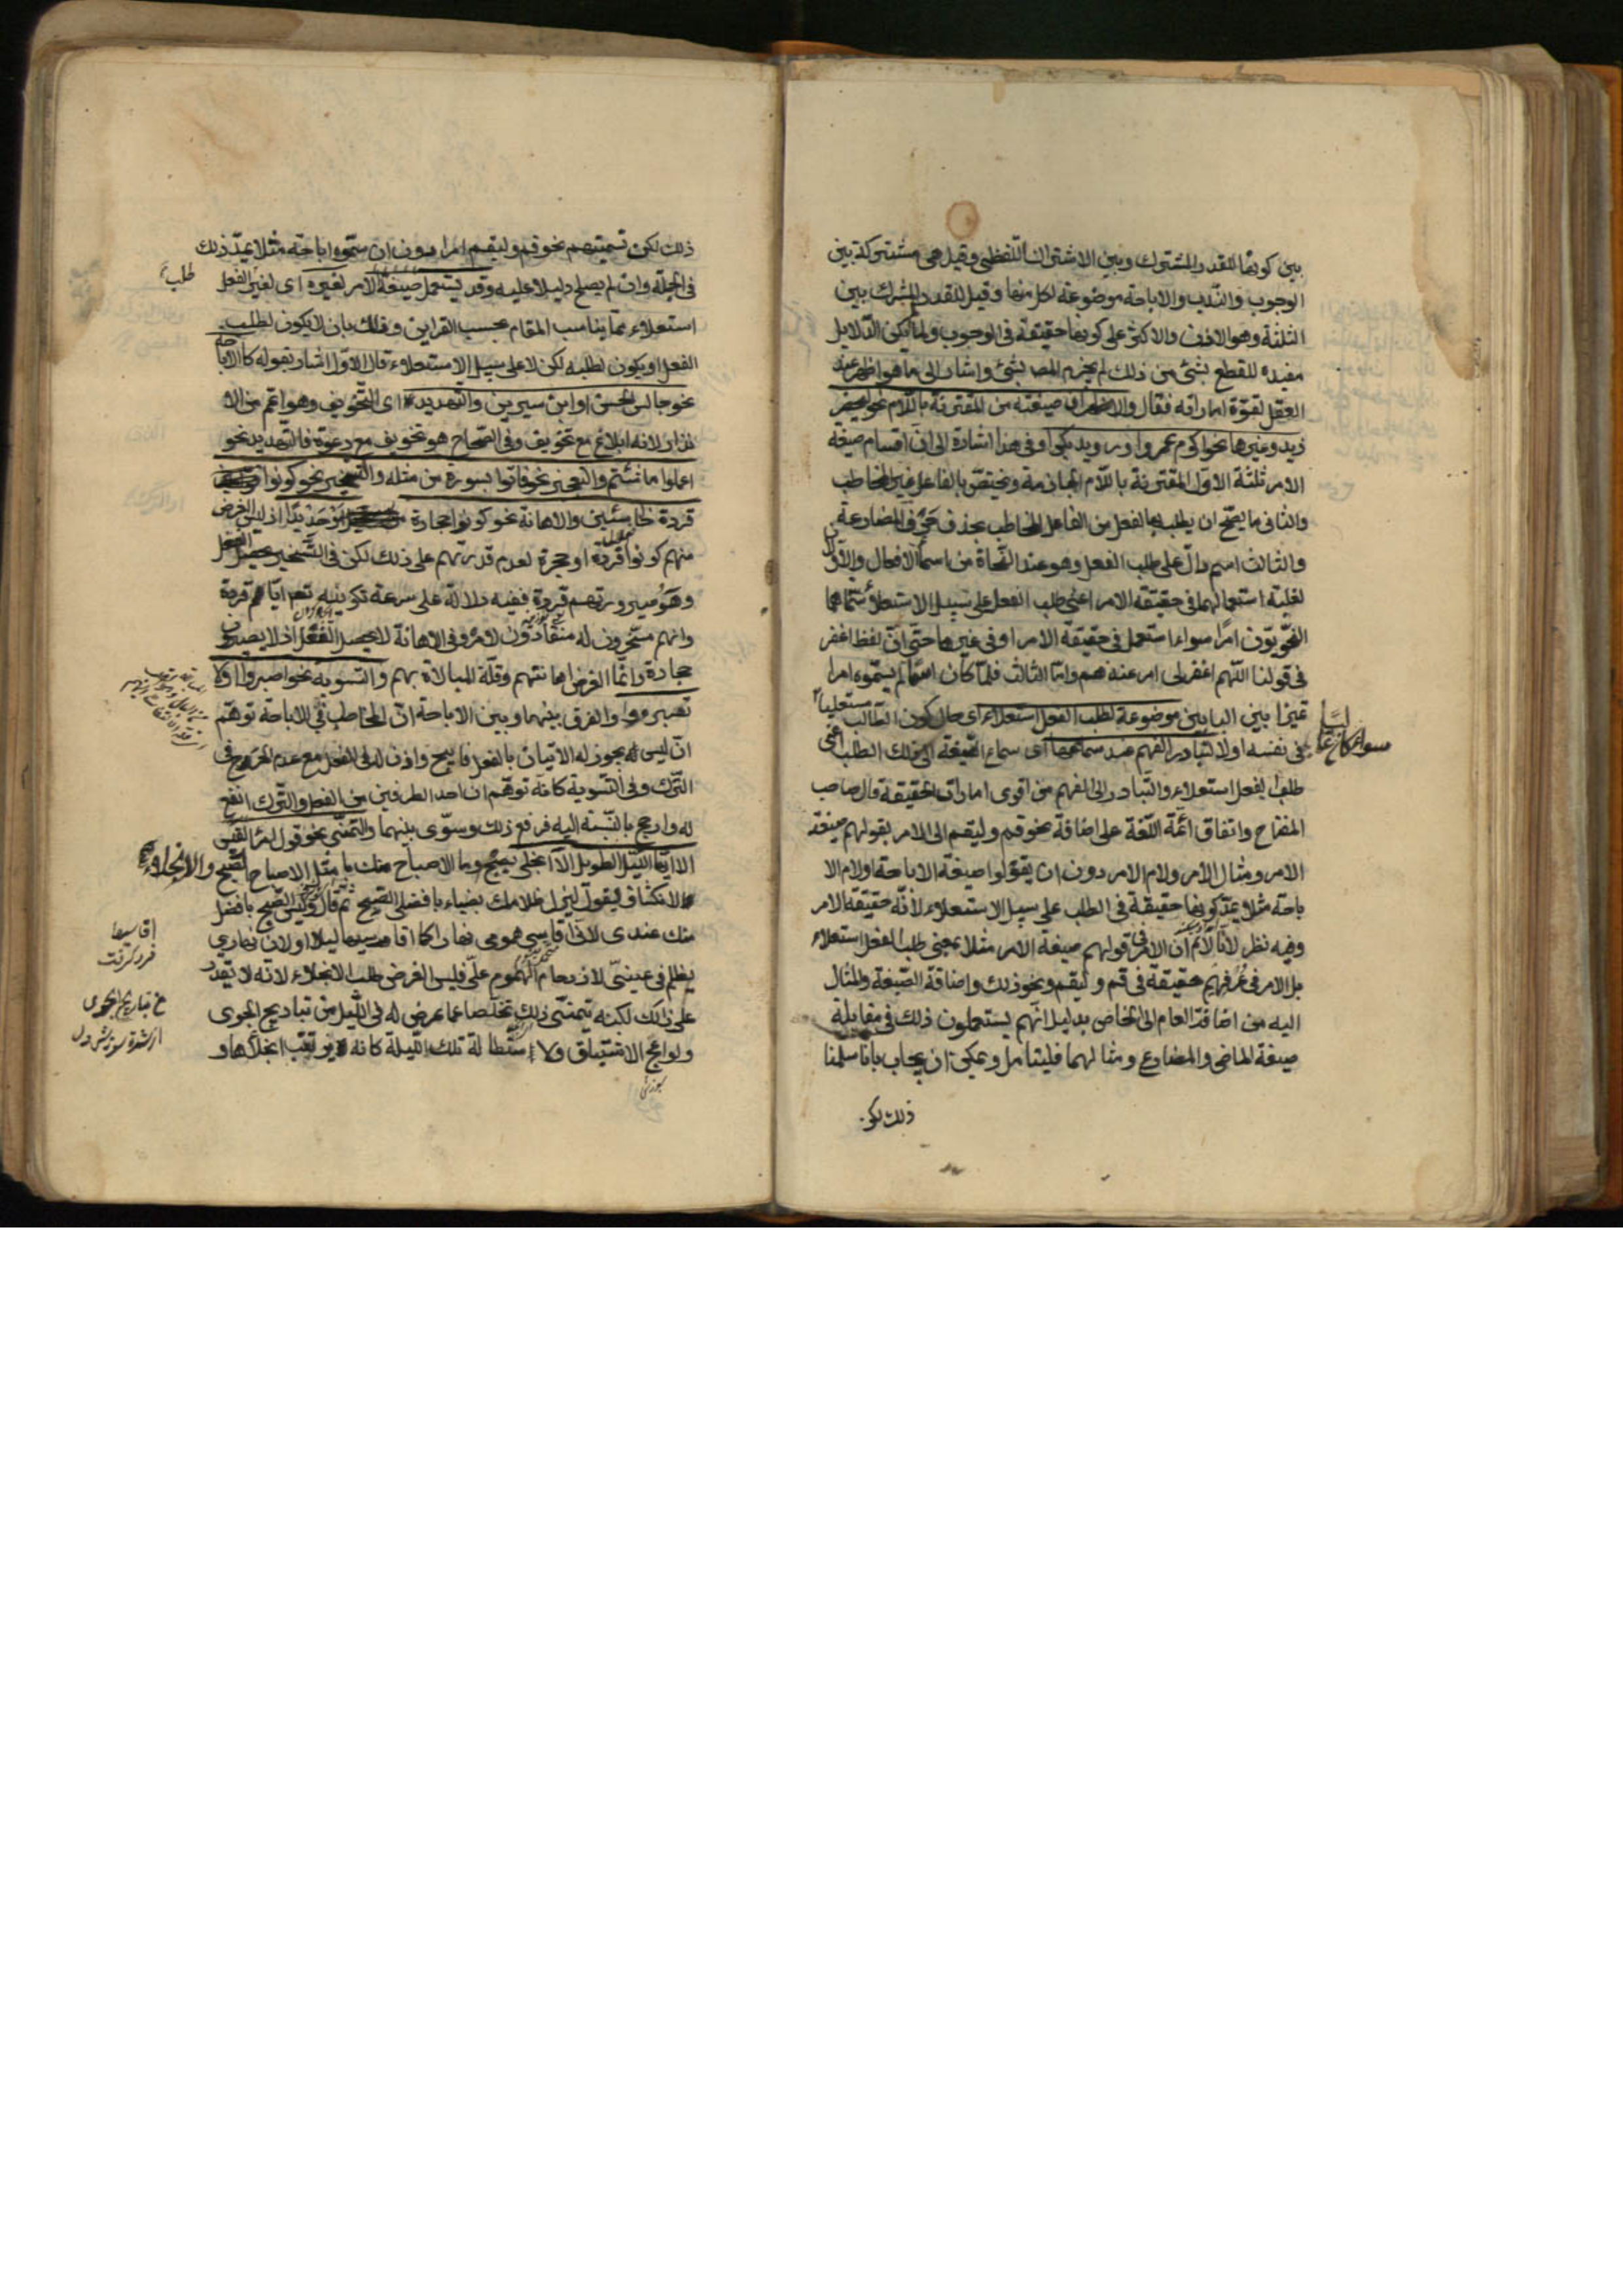 بين كونها للقدر المشترك وبين الاشتراك اللفظى وقيل هى مشتركة بين
الوجوب والندب والاباحة موضوعة لكل منها وقيل للقدر المشترك بين
الثلثة وهو الاذن والاكثر على كونها حقيقة فى الوجوب ولما لم يكن الدلايل
مفيدة للقطع بشئ من ذلك لم يجزم المص بشئ واشار الى ما هو اظهر عند
العقل لقوة اماراته فقال والاظهر ان صيغته من المقترنة باللام نحو ليحضر
زيد وغيرها نحو اكرم عمروا ورويد بكرا وفى هذا اشارة الى ان اقسام صيغة
الامر ثلثة الاول المقترنة باللام الجازمة ويختص بالفاعل غير المخاطب
والثانى ما يصح ان يطلب بها الفعل من الفاعل المخاطب بحذف حرف المضارعة
والثالث اسم دال على طلب الفعل وهو عند النحاة من اسماء الافعال والاولان
لغلبة استعمالهما فى حقيقة الامر اعنى طلب الفعل على سبيل الاستعلاء سماهما
النحويون امرا سواء استعمل فى حقيقة الامر او فى غيرها حتى ان لفظ اغفر
فى قولنا اللهم اغفر لى امر عندهم واما الثالث فلما كان اسما لم يسموه امرا
تميزا بين البابين موضوعة لطلب الفعل استعلاء اى حال كون الطالب مستعليا
سواء كان عاليا
فى نفسه اولا لتبادر الفهم عند سماعها اى سماع الصيغة الى ذلك الطلب اعنى
طلب الفعل استعلاء والتبادر الى الفهم من اقوى امارات الحقيقة قال صاحب
المفتاح واتفاق ائمة اللغة على اضافة نحو قم وليقم الى الامر بقولهم صيغة
الامر ومثال الامر ولام الامر دون ان يقولوا صيغة الاباحة او لام الا
باحة مثلا يمد كونها حقيقة فى الطلب على سبيل الاستعلاء لانه حقيقة الامر
وفيه نظر لانا لا نم ان الامر فى قولهم صيغة الامر مثلا بمعنى طلب الفعل استعلاء
بل الامر فى عرفهم حقيقة فى قم وليقم ونحو ذلك واضافة الصيغة والمثال
اليه من اضافة العام الى الخاص بدليل انهم يستعملون ذلك فى مقابلة
صيغة الماضى والمضارع ومثالهما فليتامل ويمكن ان يجاب بانا سلمنا
ذلك لكن
ذلك لكن تسميتهم نحو قم وليقم امرا دون ان سموه اباحة مثلا يمد ذلك
فى الجملة وان لم يصلح دليلا عليه وقد تستعمل صيغة الامر لغيره اى لغير طلب الفعل
استعلاء مما يناسب المقام بحسب القراين وذلك بان لا يكون لطلب
الفعل او يكون لطلبه لكن لا على سبيل الاستعلاء فالى الاول اشار بقوله كالاباحة
نحو جالس الحسن او ابن سيرين والتهديد اى التخويف وهو اعم من الا
نذار لانه ابلاغ مع تخويف وفى الصحاح هو تخويف مع دعوة فالتهديد نحو
اعملوا ما شئتم والتعجيز نحو فاتوا بسورة من مثله والتسخير نحو كونوا
قردة خاسئين والاهانة نحو كونوا حجارة او حديدا اذ ليس الغرض
منهم كونوا قردة او حجرة لعدم قدرتهم على ذلك لكن فى التسخير يحصل الفعل
وهو صيرورتهم قردة ففيه دلالة على سرعة تكوينه تعم اياهم قردة
وانهم مسخرون له منقادون لامره وفى الاهانة لا يحصل الفعل اذ لا يصيرون
حجارة وانما الغرض اهانتهم وقلة المبالاة بهم والتسوية نحو اصبروا او لا
تصبروا والفرق بينهما وبين الاباحة ان المخاطب فى الاباحة توهم
ان ليس له يجوز له الاتيان بالفعل فابيح واذن له فى الفعل مع عدم الحرج فى
الترك وفى التسوية كانه توهم ان احد الطرفين من الفعل والترك انفع
له وارجح بالنسبة اليه فرفع ذلك وسوى بينهما والتمنى نحو قول امرا القيس
الا ايها الليل الطويل الا انجلى بصبح وما الاصباح منك بامثل الاصباح الصبح والانجلاء
الانكشاف يقول ليزل ظلامك بضياء الصبح ثم قال وليس الصبح بافضل
منك عندى لانى اقاسى همومى نهارا كما اقاسيها ليلا او لان نهارى
يظلم فى عينى لازدحام الهموم على فليس الغرض طلب الانجلاء لانه لا يقدر
على ذلك لكنه يتمنى ذلك تخلصا عما عرض له فى الليل من تباريح الجوى
ولواعج الاشتياق ولاستطالة تلك الليلة كانه لا يرتقب انجلاءها و